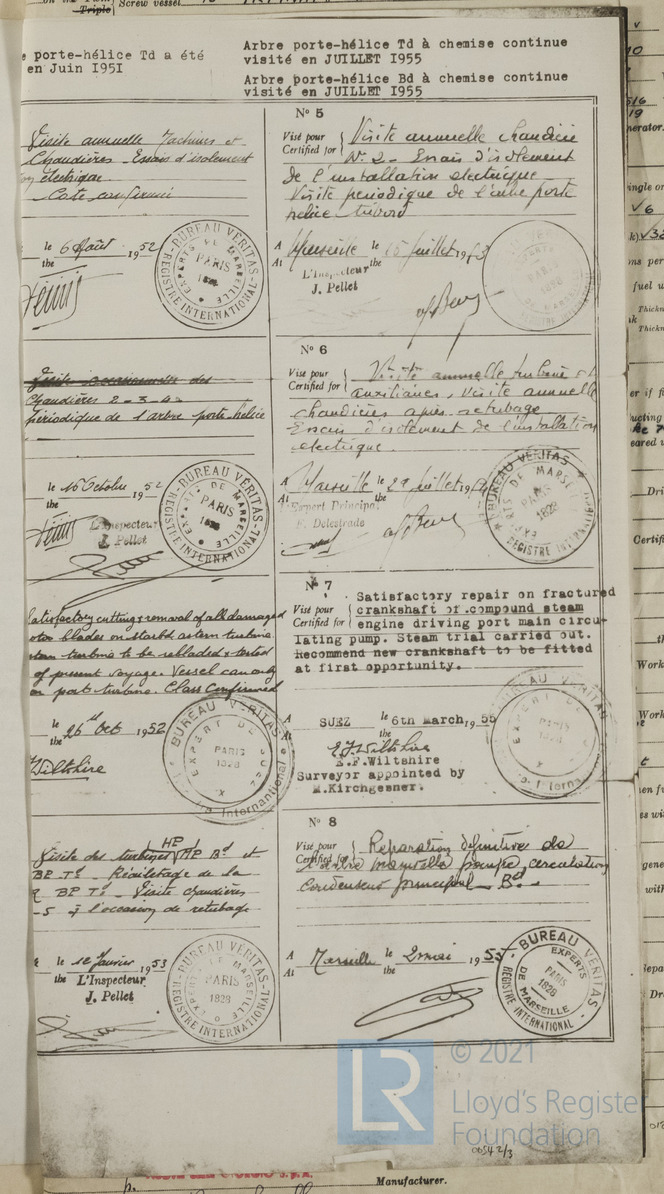 Triple
Screw vessel
porte-hélice Td a été
en Juin 1951
Arbre porte-hélice Td à chemise continue
visité en JUILLET 1955
Arbre porte-hélice Bd à chemise continue
visité en JUILLET 1955
Visite annuelle Machines et
Chaudières - Essais d'isolement
électrique
Cote confirmée
le 6 Août 1952
the
BUREAU VERITAS
EXPERTS DE MARSEILLE
PARIS
1828
REGISTRE INTERNATIONAL
des
Chaudières 2-3-4
périodique de l'arbre porte-hélice
le 16 Octobre 1952
the
L'Inspecteur
J. Pellet
BUREAU VERITAS
EXPERTS DE MARSEILLE
PARIS
1828
REGISTRE INTERNATIONAL
Satisfactory cutting & removal of all damaged
rotor blades on starbd astern turbine
astern turbine to be rebladed & tested
of present voyage. Vessel can only
on port turbine. Class Confirmed
le 26 Oct 1952
the
Wiltshire
BUREAU VERITAS
EXPERT DE SUEZ
PARIS
1828
International
Visite des turbines HP Bd et
BP Td - Réailetage de la
BP Td - Visite chaudières
-5 à l'occasion de retubage
le 12 Janvier 1953
the L'Inspecteur
J. Pellet
BUREAU VERITAS
EXPERTS DE MARSEILLE
PARIS
1828
REGISTRE INTERNATIONAL
No 5
Visé pour
Certified for
Visite annuelle chaudière
No 2 - Essais d'isolement
de l'installation electrique
Visite periodique de l'arbre porte
helice tribord
A
At
Marseille le 15 juillet 1953
the
L'Inspecteur
J. Pellet
No 6
Visé pour
Certified for
Visite annuelle turbine et
auxiliaires, visite annuelle
chaudières après retubage
Essais d'isolement de l'installation
electrique
A
At
Marseille le 29 juillet 19
the
L'Expert Principal
F. Delestrade
BUREAU VERITAS
EXPERTS DE MARSEILLE
PARIS
1828
REGISTRE INTERNATIONAL
No 7
Visé pour
Certified for
Satisfactory repair on fractured
crankshaft of compound steam
engine driving port main circu-
lating pump. Steam trial carried out.
Recommend new crankshaft to be fitted
at first opportunity.
A
At
SUEZ le 6th March, 1955
the
E.F.Wiltshire
E.F.Wiltshire
Surveyor appointed by
M.Kirchgesner.
BUREAU VERITAS
EXPERT DE SUEZ
PARIS
1828
No 8
Visé pour
Certified for
Réparation définitive de
l'arbre manivelle pompe circulation
condenseur principal Bd
A
At
Marseille le 2 mai 1955
the
BUREAU VERITAS
EXPERTS
PARIS
1828
DE MARSEILLE
REGISTRE INTERNATIONAL
LR
© 2021
Lloyd's Register
Foundation
00542/3
Manufacturer.